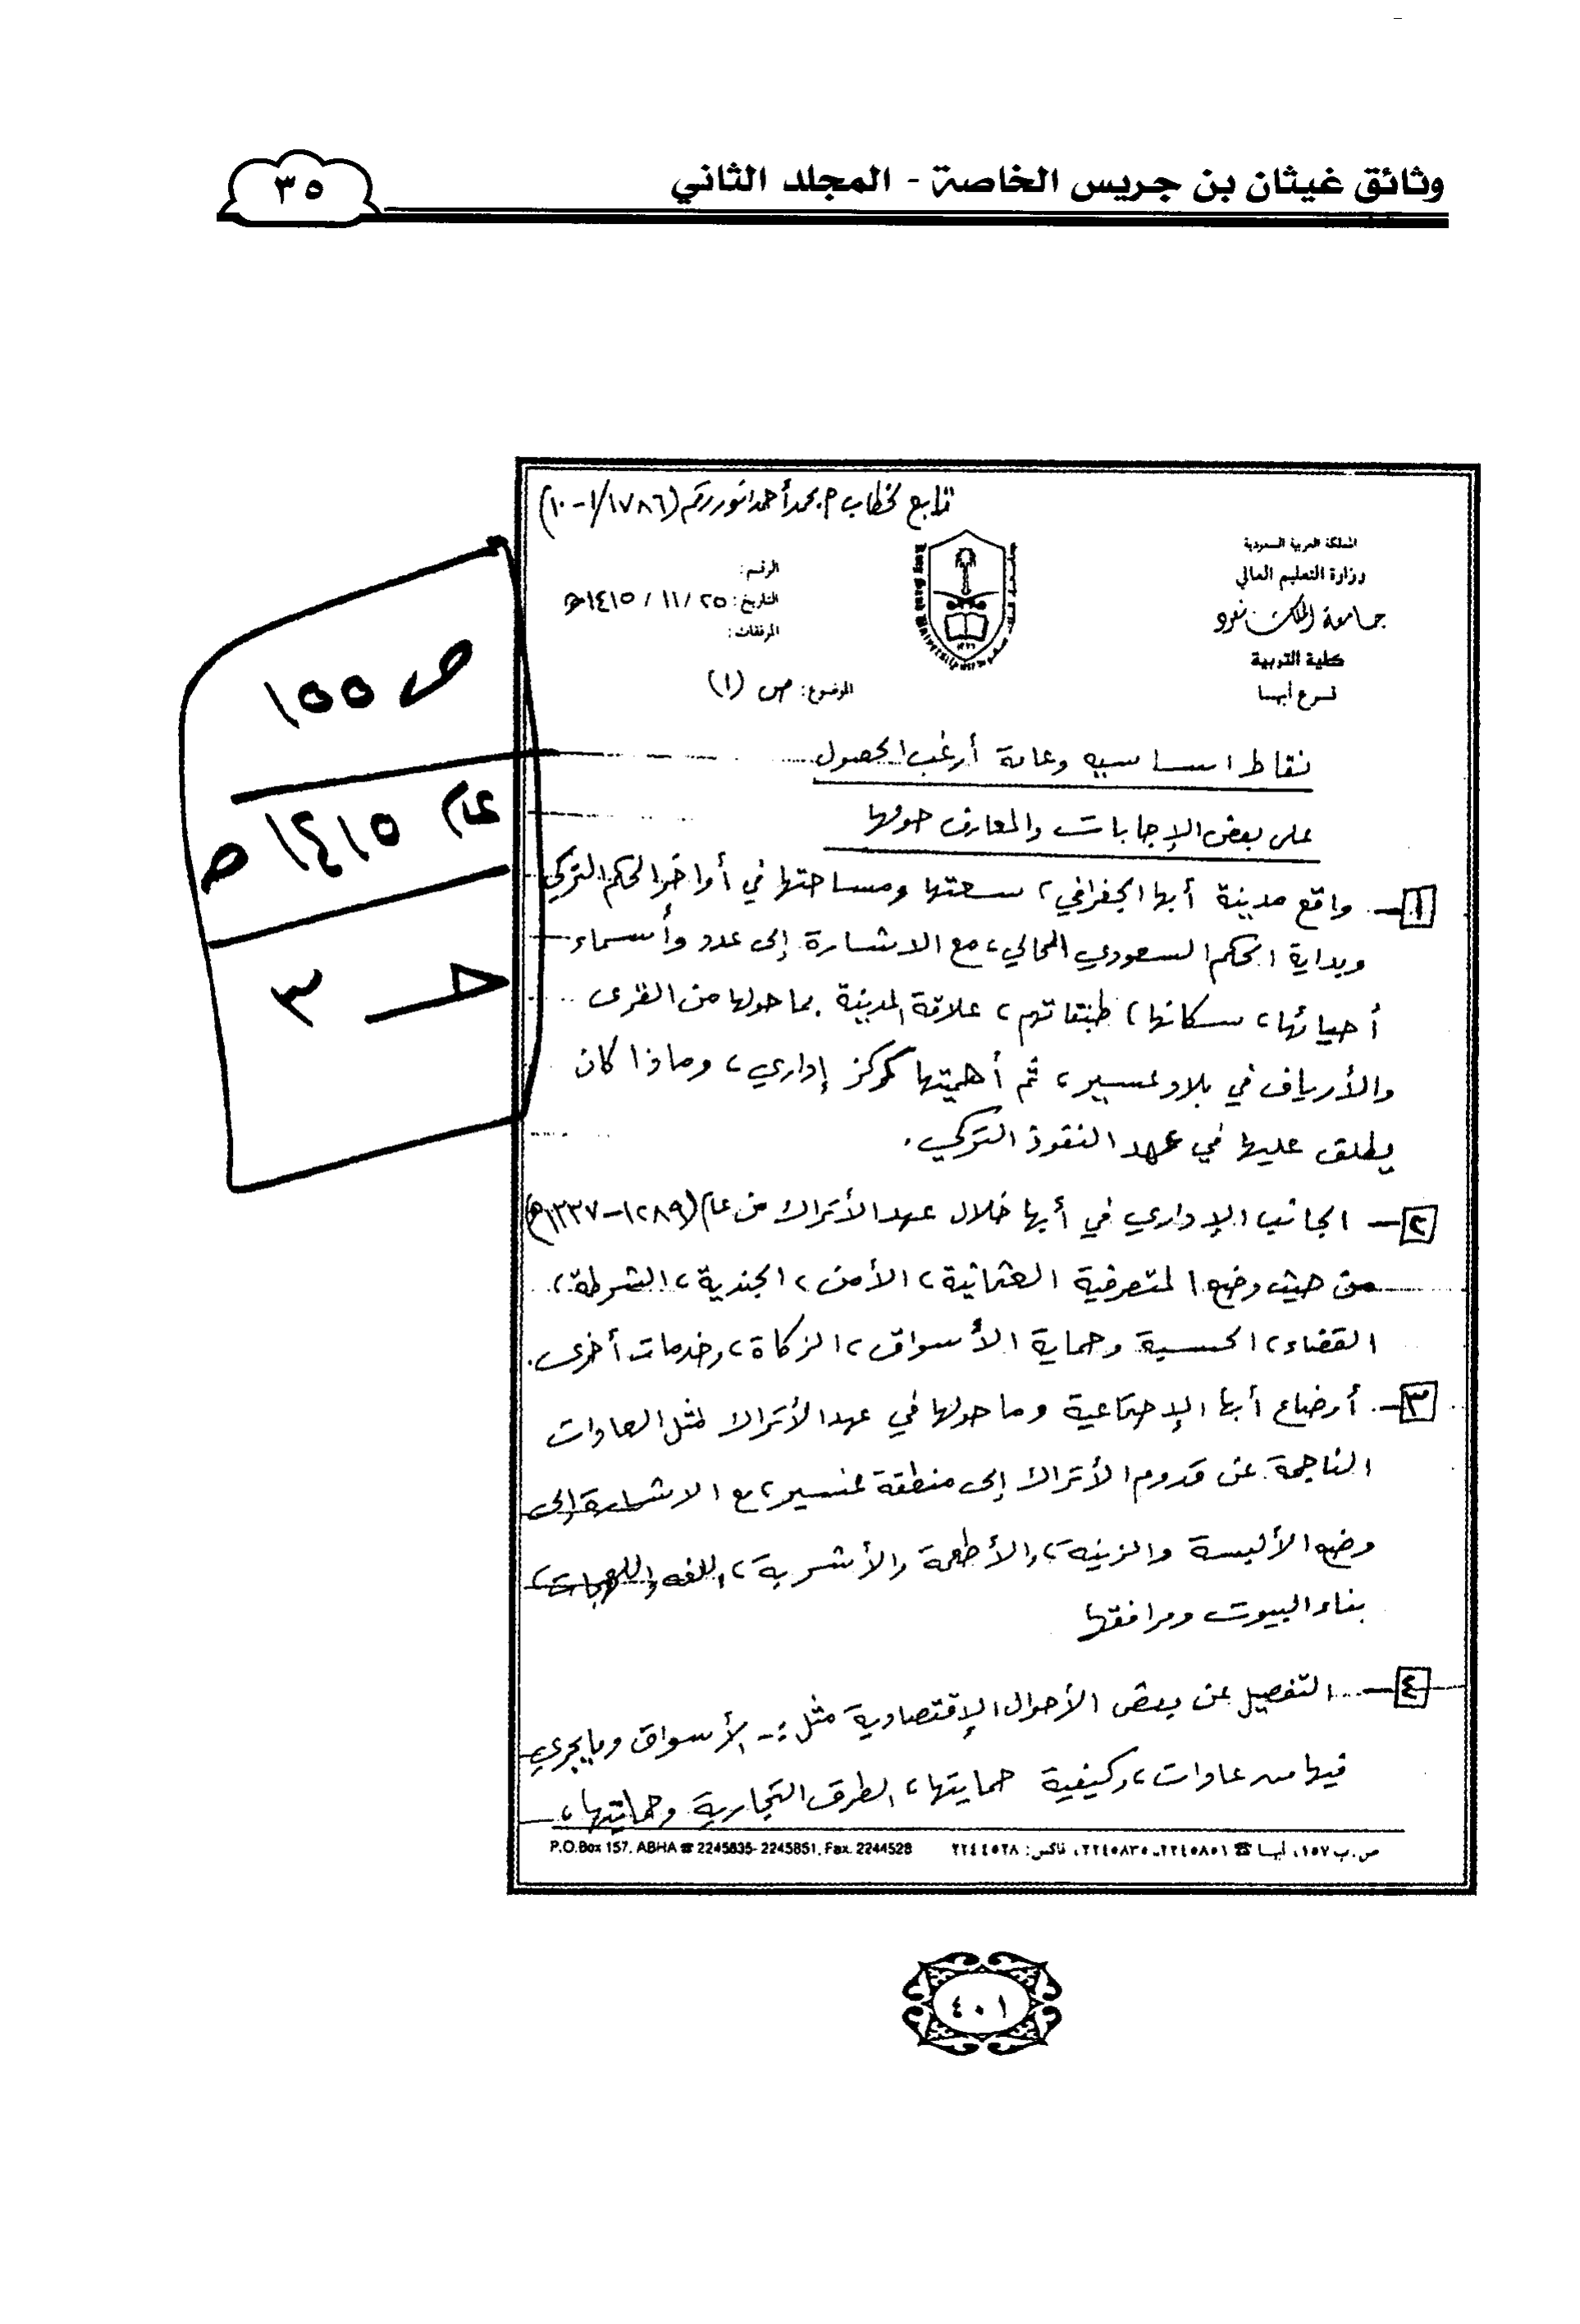 وثائق غيثان بن جريس الخاصة - المجلد الثاني
٣٥
تابع لخطاب م. محمد أحمد انور رقم (١٧٨٦/١-١٠)
المملكة العربية السعودية
وزارة التعليم العالي
جامعة الملك سعود
كلية التربية
فرع أبها
King Saud University
الرقم:
التاريخ: ٢٥ / ١١ / ١٤١٥هـ
المرفقات:
الموضوع: ص (١)
ص ١٥٥
عام ١٤١٥ هـ
حـ ٣
نقاط اساسيه وعامة أرغب الحصول
على بعض الإجابات والمعارف حولها
١- واقع مدينة أبها الجغرافي، سعتها ومساحتها في أواخر الحكم التركي
وبداية الحكم السعودي الحالي، مع الاشارة إلى عدد وأسماء
أحيائها، سكانها، طبقاتهم، علاقة المدينة بما حولها من القرى
والأرياف في بلاد عسير، ثم أهميتها كمركز إداري، وماذا كان
يطلق عليها في عهد النفوذ التركي.
٢- الجانب الإداري في أبها خلال عهد الأتراك من عام (١٢٨٩-١٣٣٧هـ)
من حيث وضع المتصرفية العثمانية، الأمن، الجندية، الشرطة،
القضاء، الحسبة وحماية الأسواق، الزكاة، وخدمات أخرى.
٣- أوضاع أبها الإجتماعية وما حولها في عهد الأتراك مثل العادات
الناجمة عن قدوم الأتراك إلى منطقة عسير، مع الاشارة إلى
وضع الألبسة والزينة، والأطعمة والأشربة، اللغه واللهجات،
بناء البيوت ومرافقها
٤- التفصيل عن بعض الأحوال الإقتصادية مثل :- الأسواق وما يجري
فيها من عادات، وكيفية حمايتها، الطرق التجارية وحمايتها،
ص.ب ١٥٧، أبها ☎ ٢٢٤٥٨٥١ـ ٢٢٤٥٨٣٥، فاكس: ٢٢٤٤٥٢٨
P.O.Box 157, ABHA ☎ 2245835- 2245851, Fax. 2244528
٤٠١